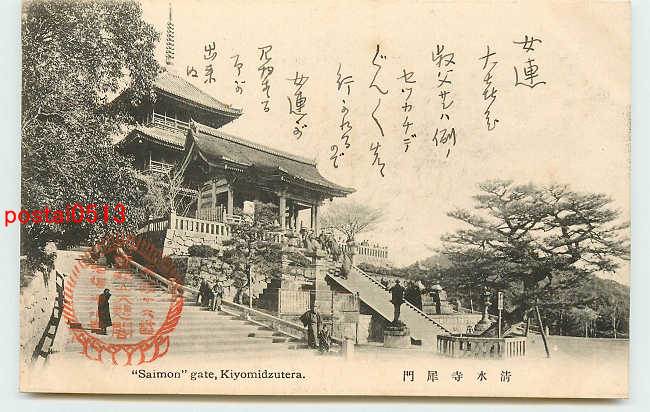 女連
大喜び
叔父サハ例ノ
セッカチデ
ぐんぐん先
行かれるので
女連が
見物する
事が
出来ぬ
postal0513
"Saimon" gate, Kiyomidzutera.
門犀寺水清